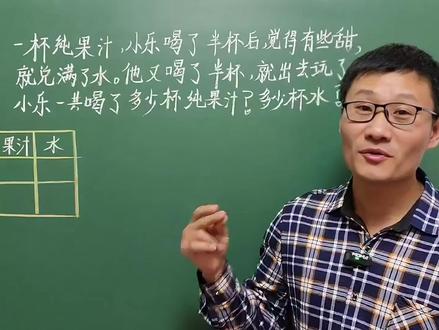 一杯纯果汁,小乐喝了半杯后,觉得有些甜,
就兑满了水。他又喝了半杯,就出去玩了
小乐一共喝了多少杯纯果汁?多少杯水?
果汁 水